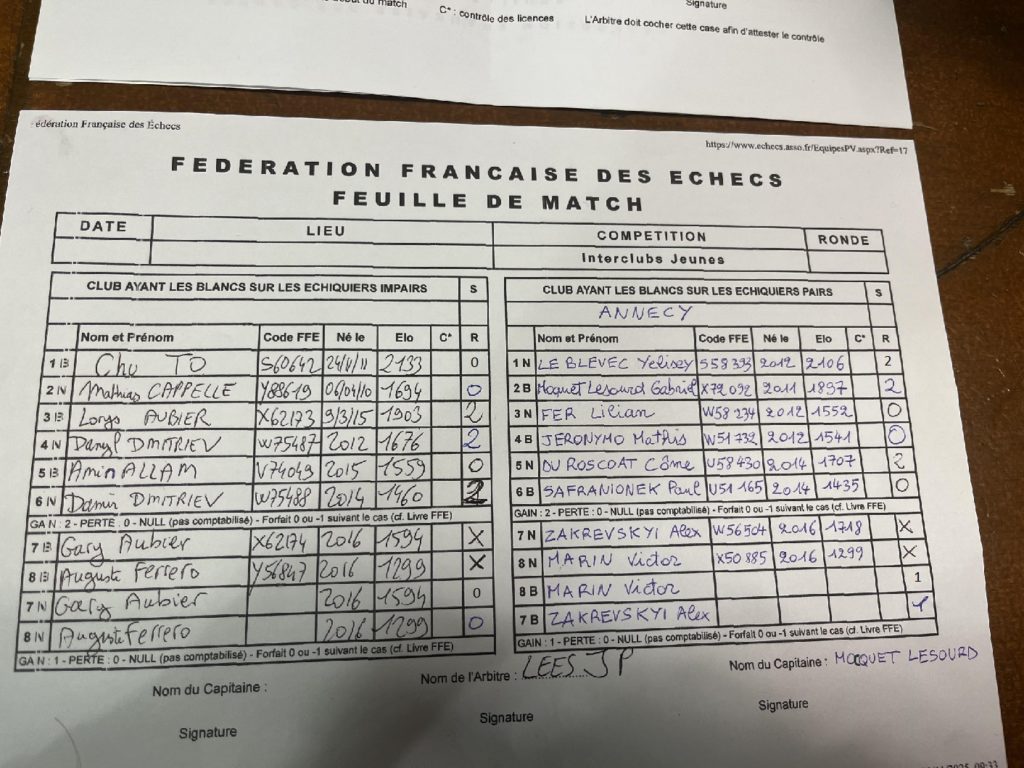 Signature
C* : contrôle des licences L'Arbitre doit cocher cette case afin d'attester le contrôle
édération Française des Échecs
https://www.echecs.asso.fr/EquipesPV.aspx?Ref=17
FEDERATION FRANCAISE DES ECHECS
FEUILLE DE MATCH
DATE LIEU COMPETITION RONDE
Interclubs Jeunes
CLUB AYANT LES BLANCS SUR LES ECHIQUIERS IMPAIRS S
Nom et Prénom Code FFE Né le Elo C* R
1 B Chu TO S60642 24/11/11 2133 0
2 N Mathias CAPPELLE Y88619 06/04/10 1694 0
3 B AUBIER X62173 9/3/15 1903 2
4 N Danyl DMITRIEV W75487 2012 1676 2
5 B Amin ALLAM V74049 2015 1559 0
6 N Damir DMITRIEV W75488 2014 1460 2
GAIN : 2 - PERTE : 0 - NULL (pas comptabilisé) - Forfait 0 ou -1 suivant le cas (cf. Livre FFE)
7 B Gary Aubier X62174 2016 1594 X
8 B Auguste Ferrero Y56847 2016 1299 X
7 N Gary Aubier 2016 1594 0
8 N Auguste Ferrero 2016 1299 0
GAIN : 1 - PERTE : 0 - NULL (pas comptabilisé) - Forfait 0 ou -1 suivant le cas (cf. Livre FFE)
CLUB AYANT LES BLANCS SUR LES ECHIQUIERS PAIRS S
ANNECY
Nom et Prénom Code FFE Né le Elo C* R
1 N LE BLEVEC Yelisey S58393 2012 2106 2
2 B Moquet Lesourd Gabriel X72092 2011 1897 2
3 N FER Lilian W58234 2012 1552 0
4 B JERONYMO Mathis W51732 2012 1541 0
5 N DU ROSCOAT Côme U58430 2014 1707 2
6 B SAFRANIONEK Paul U51165 2014 1435 0
GAIN : 2 - PERTE : 0 - NULL (pas comptabilisé) - Forfait 0 ou -1 suivant le cas (cf. Livre FFE)
7 N ZAKREVSKYI Alex W56504 2016 1718 X
8 N MARIN Victor X50885 2016 1299 X
8 B MARIN Victor 1
7 B ZAKREVSKYI Alex 1
GAIN : 1 - PERTE : 0 - NULL (pas comptabilisé) - Forfait 0 ou -1 suivant le cas (cf. Livre FFE)
Nom du Capitaine :
Nom de l'Arbitre : LEES JP
Nom du Capitaine : MOQUET LESOURD
Signature
Signature
Signature